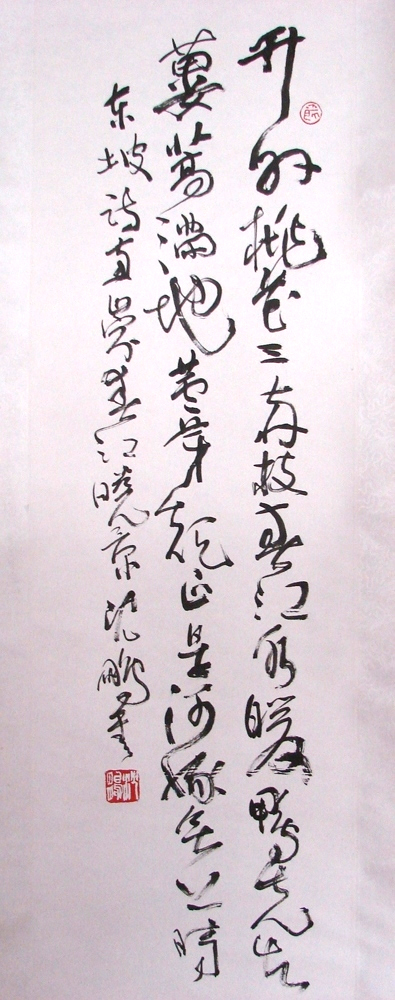 竹外桃花三两枝春江水暖鴨先知
蔞蒿满地蘆芽短正是河豚欲上時
东坡诗惠崇春江曉景沈鵬書